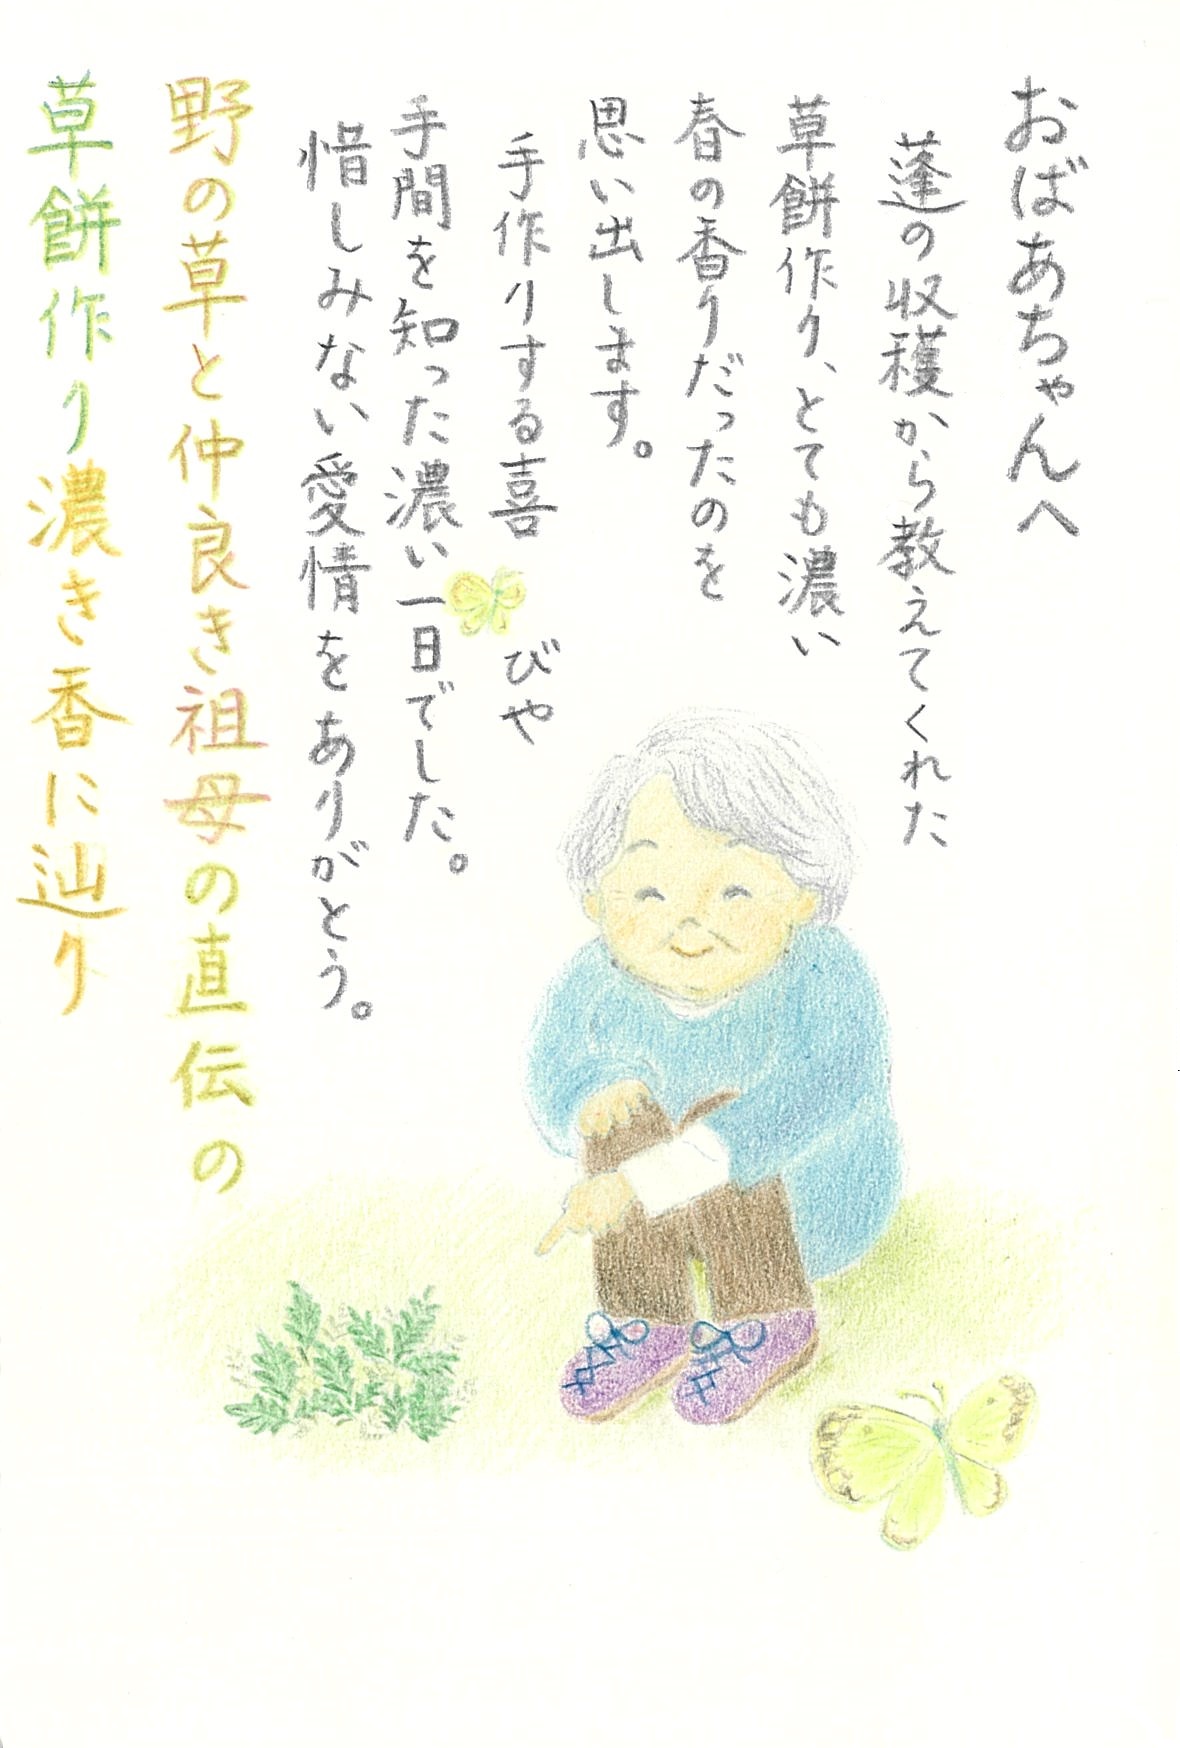 おばあちゃんへ
蓬の収穫から教えてくれた
草餅作り、とても濃い
春の香りだったのを
思い出します。
手作りする喜びや
手間を知った濃い一日でした。
惜しみない愛情をありがとう。
野の草と仲良き祖母の直伝の
草餅作り濃き香に辿り